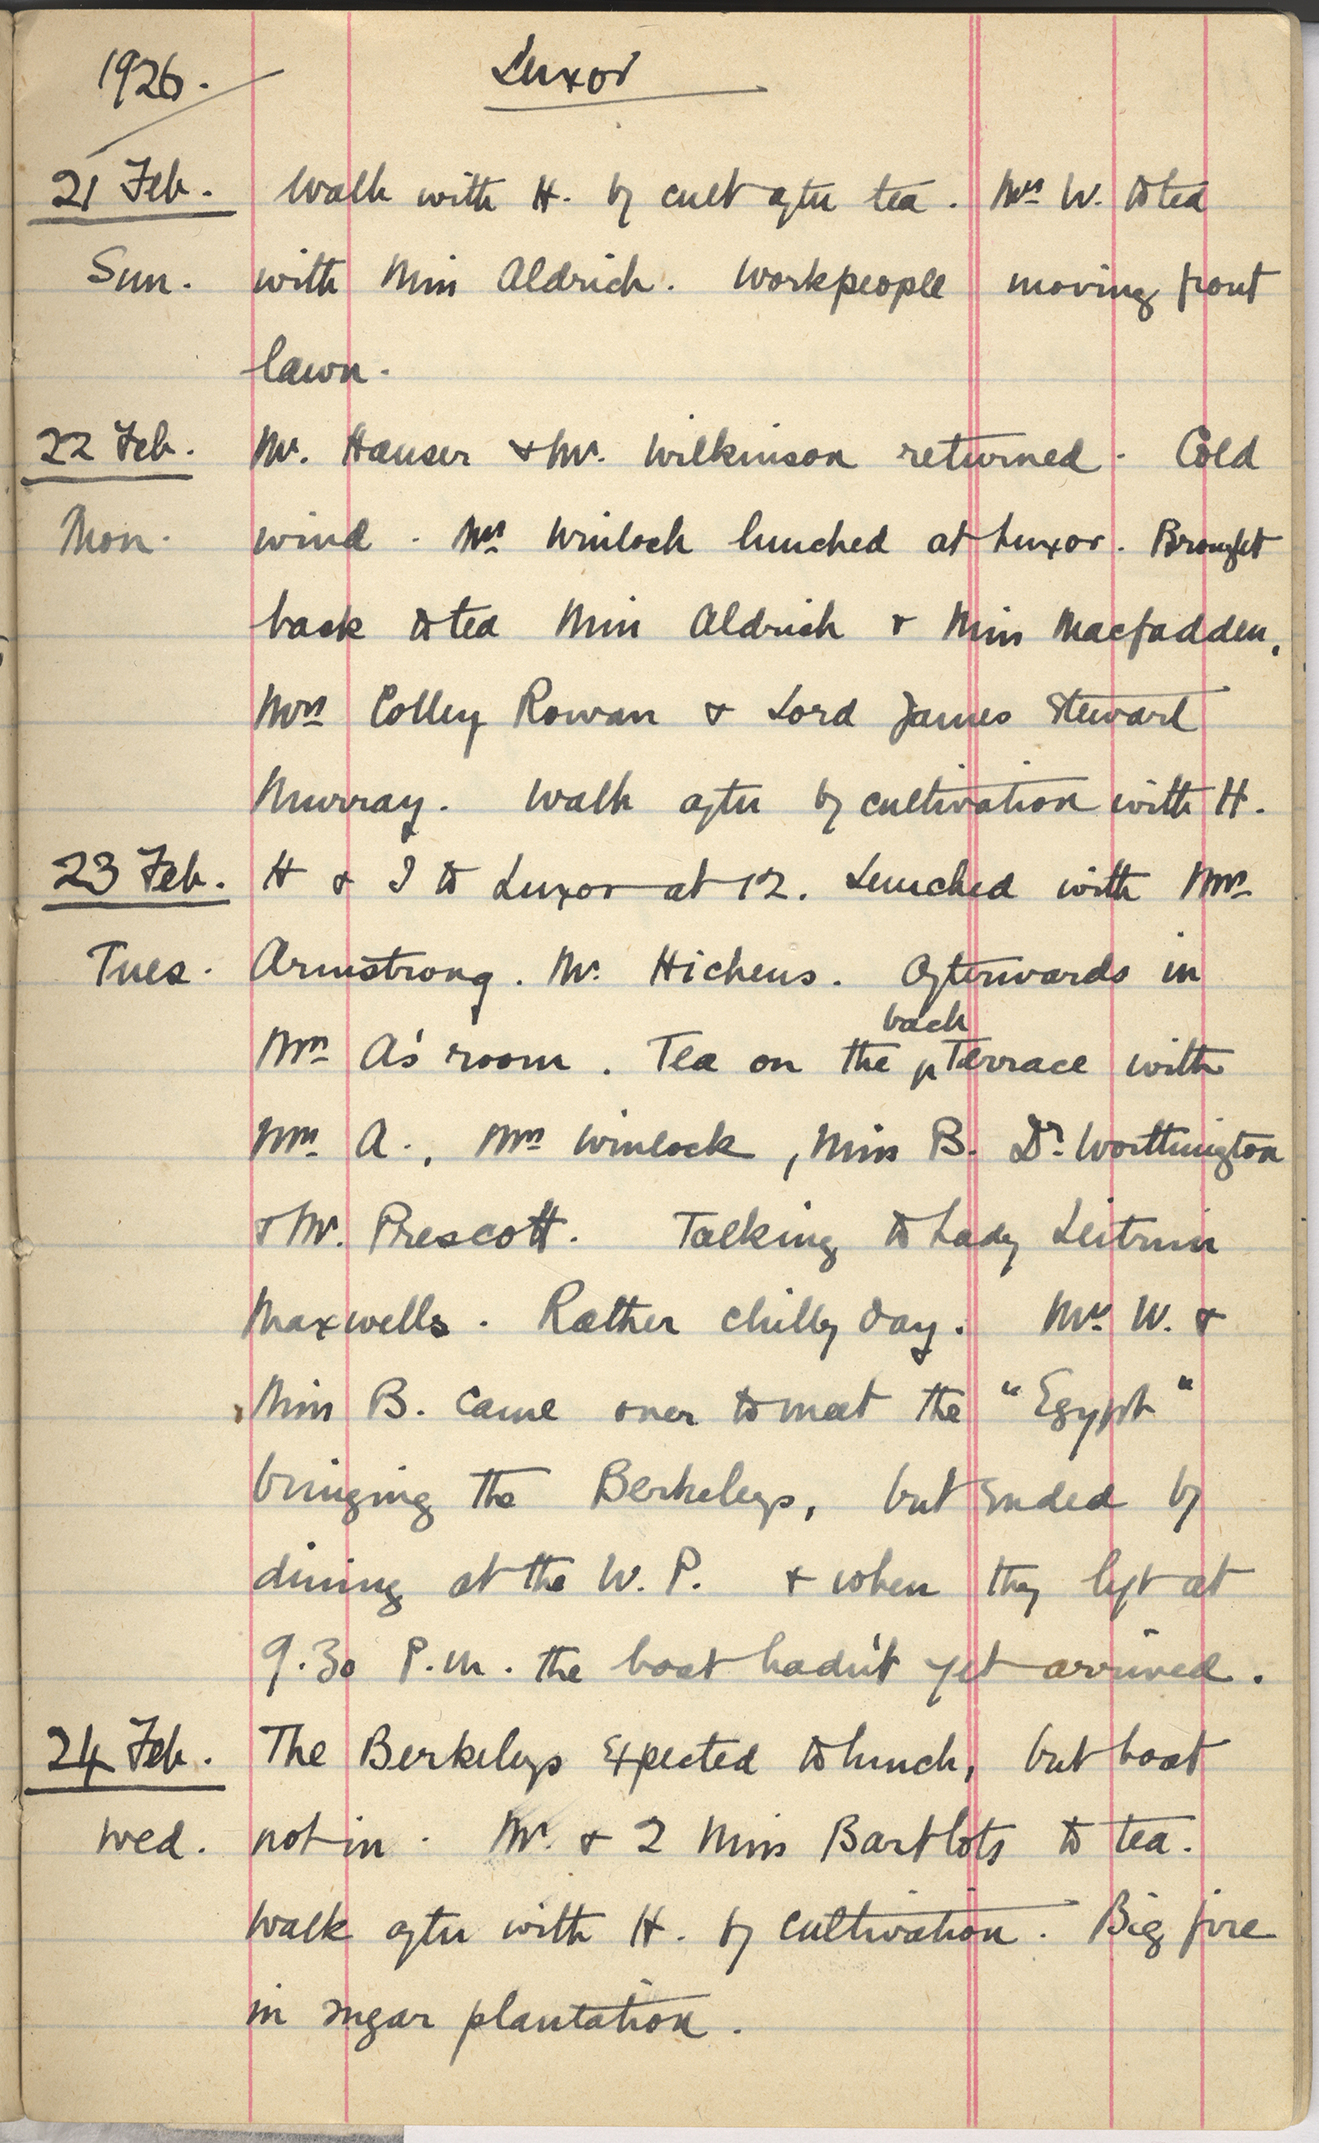 1926. Luxor
21 Feb. Walk with H. by cult after tea. Mrs W. to tea
Sun. with Miss Aldrich. Workpeople moving front
lawn.
22 Feb. Mr. Hauser & Mr. Wilkinson returned. Cold
Mon. wind. Mrs Winlock lunched at Luxor. Brought
back to tea Miss Aldrich & Miss Macfadden,
Mrs Colley Rowan & Lord James Stewart
Murray. Walk after by cultivation with H.
23 Feb. H & I to Luxor at 12. Lunched with Mrs
Tues. Armstrong. Mr. Hichens. Afterwards in
Mrs A's room. Tea on the back Terrace with
Mrs A., Mrs Winlock, Miss B. Dr. Worthington
& Mr. Prescott. Talking to Lady Leitrim
Maxwells. Rather chilly day. Mrs W. &
Miss B. came over to meet the "Egypt"
bringing the Berkeleys, but ended by
dining at the W. P. & when they left at
9.30 P.m. the boat hadn't yet arrived.
24 Feb. The Berkeleys expected to lunch, but boat
Wed. not in. Mr. & 2 Miss Bartlots to tea.
Walk after with H. by cultivation. Big fire
in sugar plantation.